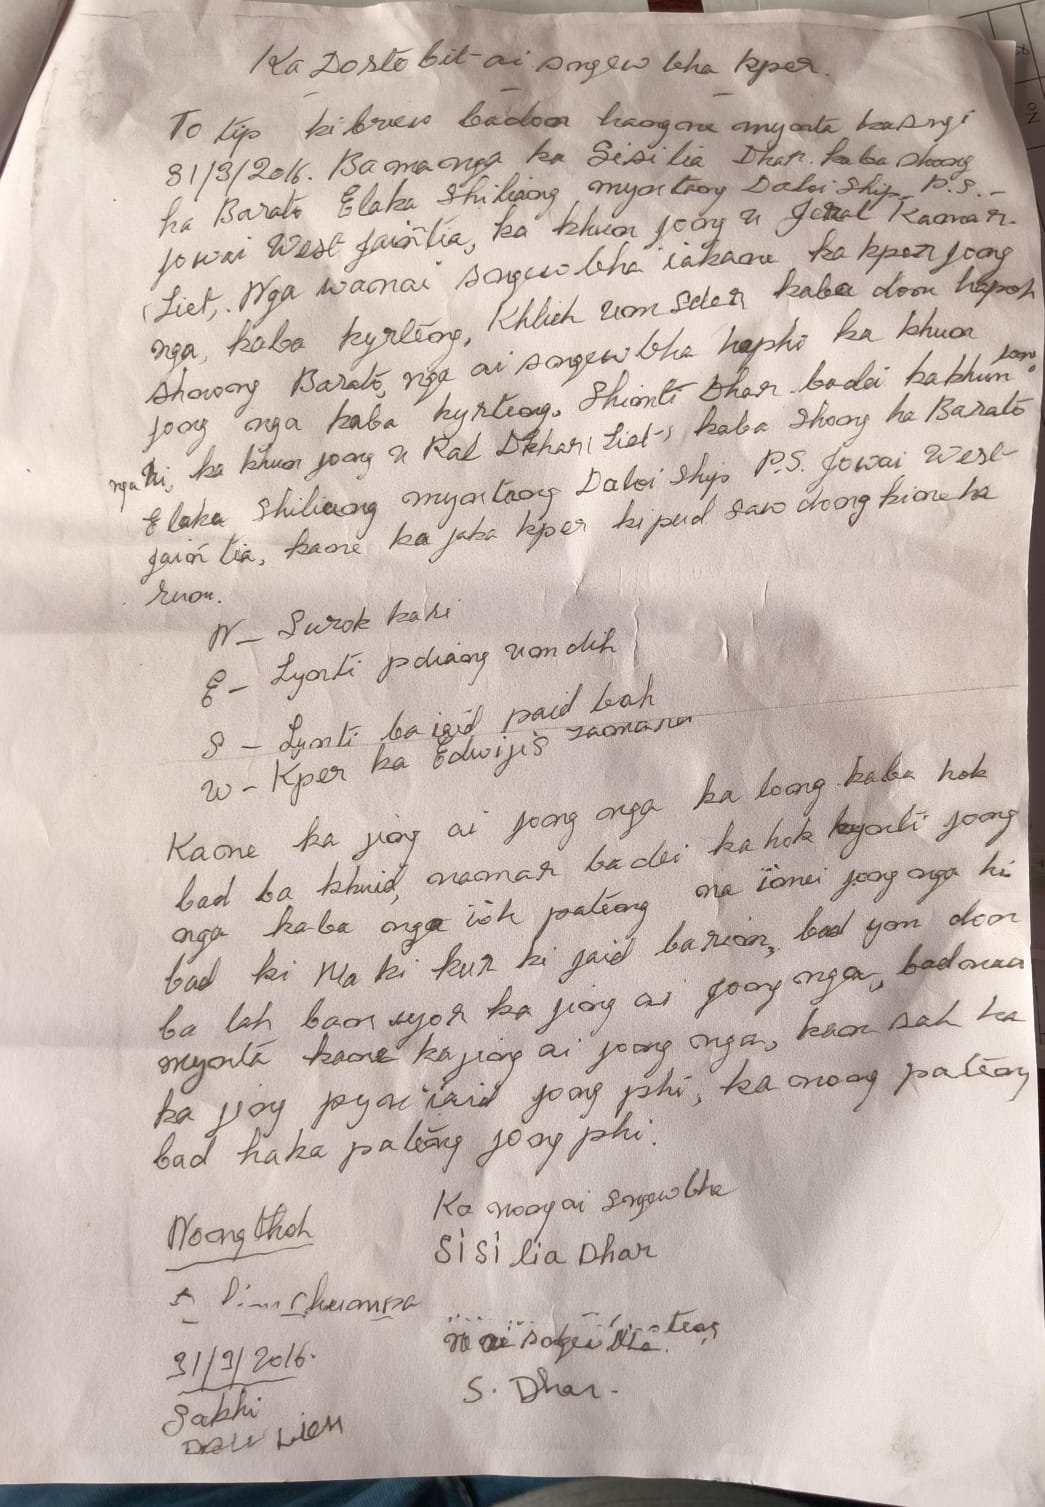 Ka Dosto bit ai sngew bha kper.
To tip ki briew badon hangne mynta kasngi
31/3/2016. Ba ma nga ka Sisilia Dhar kaba shong
ha Barato Elaka Shiliang myntang Daloi Ship P.S.-
Jowai West Jaiñtia, ka khun jong u Jeral Kamar.
(Liet). Nga wan ai sngew bha ia kane ka kper jong
nga, kaba kyrteng, Khlieh umsder kaba don hapoh
shnong Barato, nga ai sngew bha haphi ka khun
jong nga kaba kyrteng. Shimti Dhar badei kakhun jong
nga hi, ka khun jong u Ral Dkhar (Liet) kaba Shong ha Barato
Elaka Shiliang myntang Daloi Ship P.S. Jowai West
Jaiñtia, kane ka jaka kper ki pud saw dong kine ha
rum.
N - Surok kari
E - Lynti pdiang um dih
S - Lynti ba iaid paid bah
W - Kper ka Edwijis
Kane ka jing ai jong nga ka long kaba hok
bad ba khuid, namar ba dei ka hok kynti jong
nga kaba nga ioh pateng na ïmei jong nga hi
bad ki Ma ki kur ki jaid barim, bad ym don
ba lah ban ujor ka jing ai jong nga, bad naa
mynta kane ka jing ai jong nga, kan sah ha
ka jing pyn ïaid jong phi, ka nong pateng
bad haka pateng jong phi.
Nongthoh
Ka nong ai sngewbha
Sisilia Dhar
31/3/2016.
S. Dhar.
Sakhi